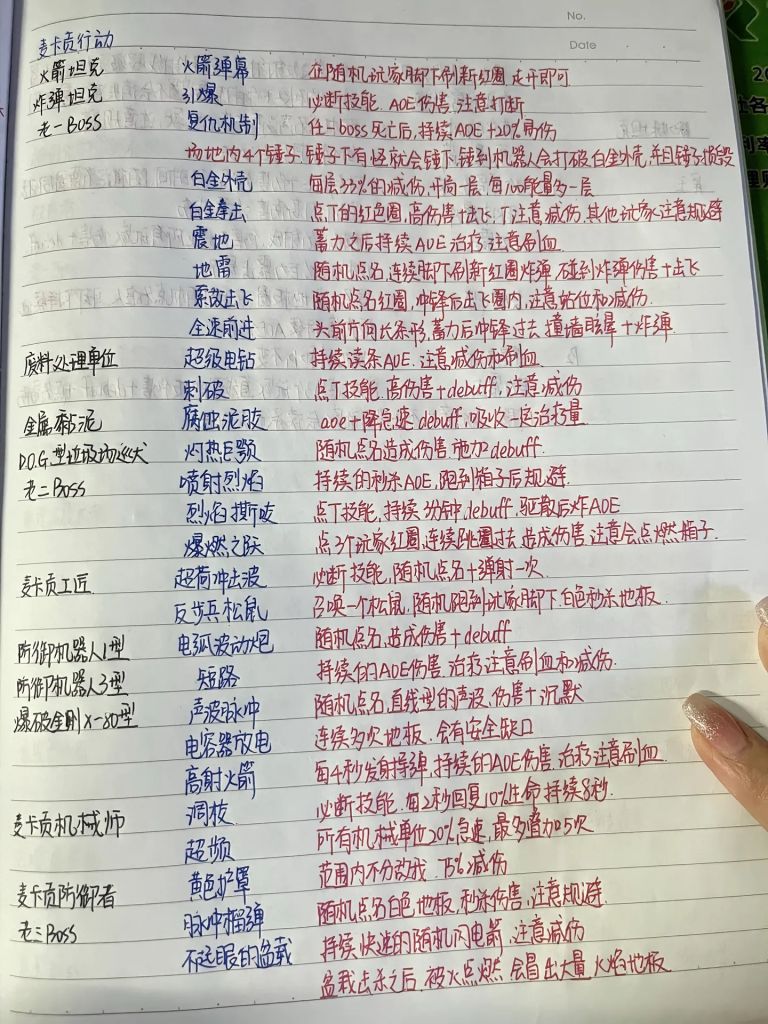 No.
Date
麦卡贡行动
火箭坦克 火箭弹幕 在随机玩家脚下刷新红圈 走开即可
炸弹坦克 引爆 必断技能. AOE伤害. 注意打断
老一Boss 复仇机制 任一boss死亡后, 持续AOE+20%易伤
场地内4个锤子. 锤子下有怪就会锤下. 锤到机器人会打破白金外壳, 并且锤子损毁
白金外壳 每层33%的减伤, 开局一层, 每100能量多一层
白金拳击 点T的红色圈, 高伤害+击飞. T注意减伤. 其他玩家注意规避
震地 蓄力之后持续AOE 治疗注意刷血
地雷 随机点名, 连续脚下刷新红圈炸弹 碰到炸弹伤害+击飞
索敌击飞 随机点名红圈, 冲锋后击飞圈内, 注意站位和减伤.
全速前进 头前方向长条形, 蓄力后冲锋过去 撞墙眩晕+炸弹
废料处理单位 超级电钻 持续读条AOE. 注意减伤和刷血
刺破 点T技能. 高伤害+debuff, 注意减伤
金属黏泥 腐蚀泥胶 aoe+降急速debuff, 吸收一定治疗量
D.O.G.型垃圾场巡犬 灼热巨颚 随机点名造成伤害. 施加debuff.
老二Boss 喷射烈焰 持续的秒杀AOE, 跑到箱子后规避.
烈焰撕咬 点T技能, 持续3分钟debuff. 驱散后炸AOE
爆燃之跃 点3个玩家红圈, 连续跳圈过去 造成伤害. 注意会点燃箱子.
麦卡贡工匠 超荷冲击波 必断技能, 随机点名+弹射一次.
反步兵松鼠 召唤一个松鼠, 随机跑到玩家脚下. 白色秒杀地板.
防御机器人1型 电弧波动炮 随机点名, 造成伤害+debuff
防御机器人3型 短路 持续的AOE伤害 治疗注意刷血和减伤.
爆破金刚X-80型 声波脉冲 随机点名, 直线型的声波. 伤害+沉默
电容器放电 连续多次地板. 会有安全缺口
高射火箭 每4秒发射导弹, 持续的AOE伤害. 治疗注意刷血
麦卡贡机械师 调校 必断技能. 每2秒回复10%生命 持续8秒.
超频 所有机械单位20%急速, 最多叠加5次
麦卡贡防御者 黄色护罩 范围内不分敌我. 75%减伤
老三Boss 脉冲榴弹 随机点名白色地板, 秒杀伤害, 注意规避
不起眼的盆栽 持续快速的随机闪电箭. 注意减伤
盆栽击杀之后, 被火点燃, 会冒出大量火焰地板